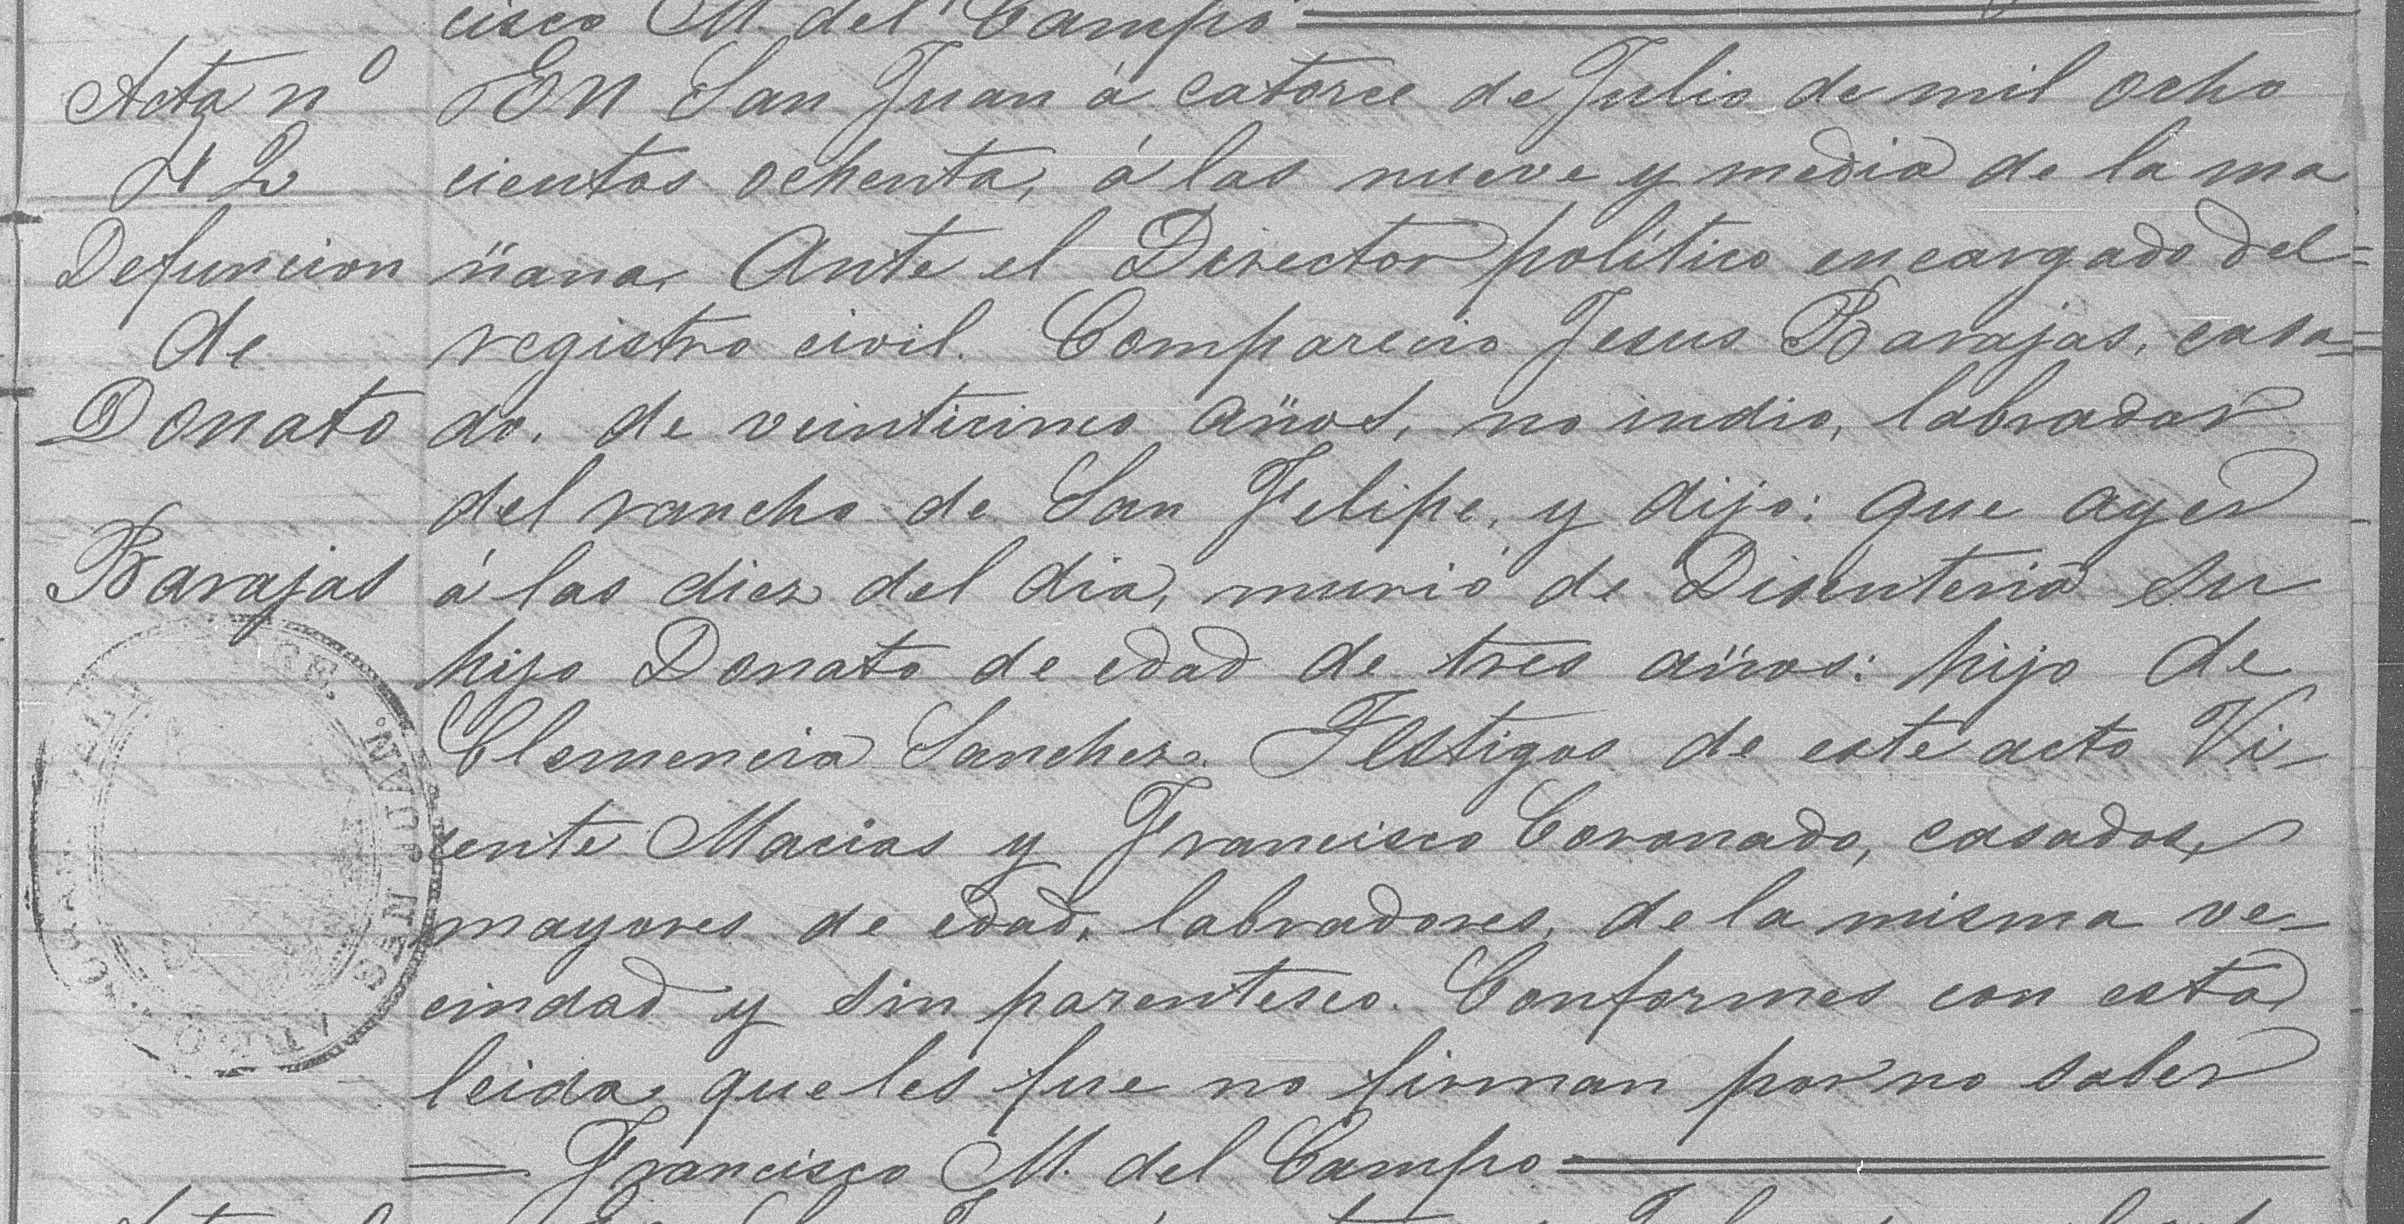 cisco M. del Campo
Acta nº
42
Defuncion
de
Donato
Barajas
En San Juan á catorce de Julio de mil ocho
cientos ochenta, á las nueve y media de la ma
ñana. Ante el Director político encargado del=
registro civil. Comparecio Jesus Barajas, casa=
do, de veinticinco años, no indio, labrador
del rancho de San Felipe, y dijo: que ayer
á las diez del dia, murió de Disenteria su
hijo Donato de edad de tres años: hijo de
Clemencia Sanchez. Testigos de este acto Vi-
cente Macias y Francisco Coronado, casados,
mayores de edad, labradores, de la misma ve-
cindad y sin parentesco. Conformes con esta
leida que les fue no firman por no saber
= Francisco M. del Campo